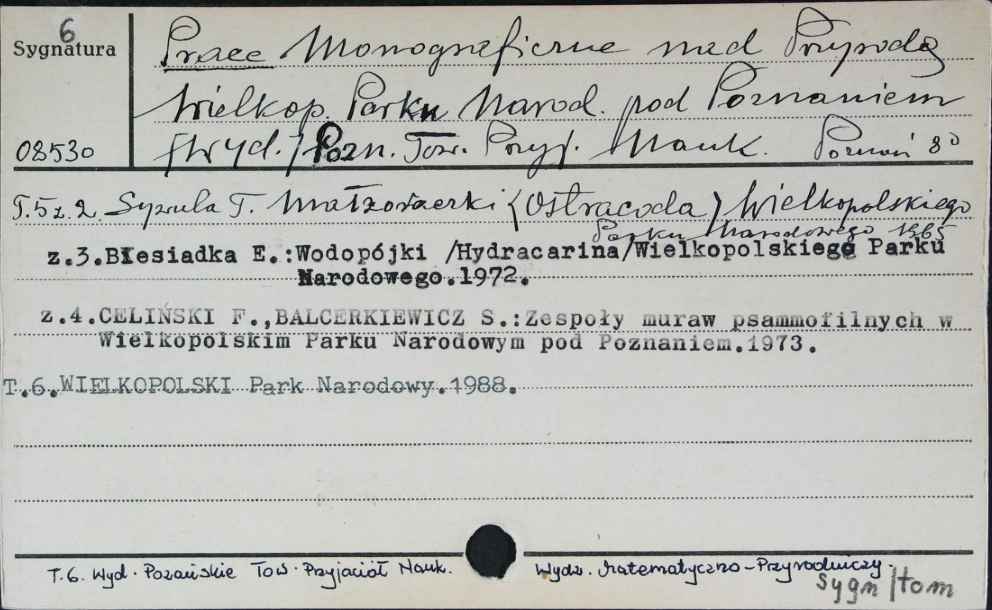 6
Sygnatura
Prace Monograficzne nad Przyrodą
Wielkop. Parku Narod. pod Poznaniem
08530
[Wyd.] Pozn. Tow. Przyj. Nauk. Poznań 8°
T.5 z.2. Sywula T. Małżoraczki (Ostracoda) Wielkopolskiego
Parku Narodowego 1965
z.3.Biesiadka E.:Wodopójki /Hydracarina/Wielkopolskiego Parku
Narodowego.1972.
z.4.CELIŃSKI F.,BALCERKIEWICZ S.:Zespoły muraw psammofilnych w
Wielkopolskim Parku Narodowym pod Poznaniem.1973.
T.6.WIELKOPOLSKI Park Narodowy.1988.
T.6. Wyd. Pozańskie Tow. Przyjaciół Nauk. Wydz. Matematyczno-Przyrodniczy.
Sygn/tom